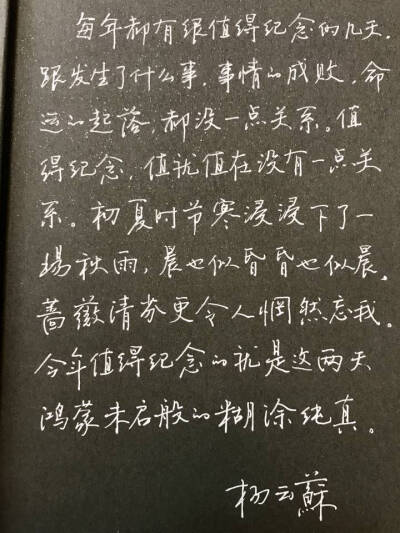 每年都有很值得纪念的几天，
跟发生了什么事，事情的成败，命
运的起落，都没一点关系。值
得纪念，值就值在没有一点关
系。初夏时节寒浸浸下了一
场秋雨，晨也似昏昏也似晨，
蔷薇清芬更令人惘然忘我。
今年值得纪念的就是这两天
鸿蒙未启般的糊涂纯真。
杨云蘇